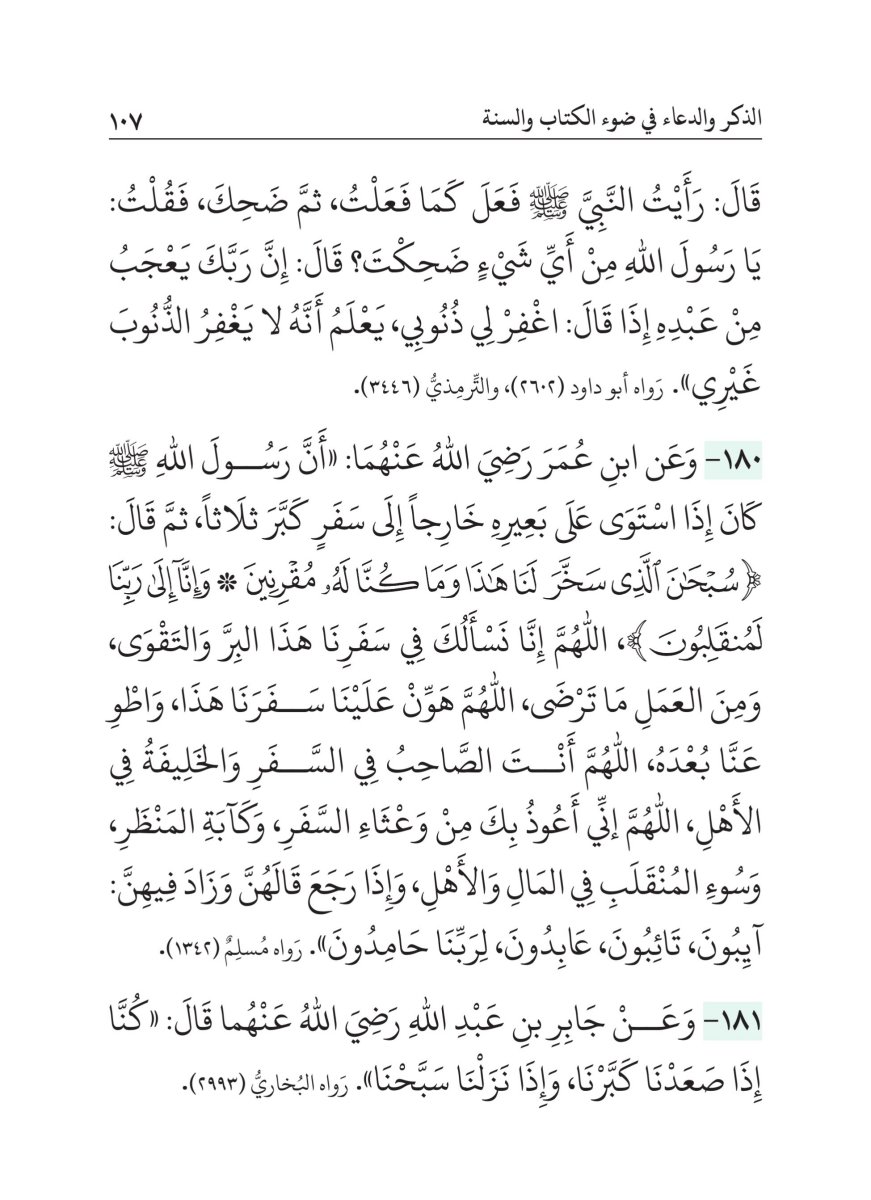 الذكر والدعاء في ضوء الكتاب والسنة ١٠٧
قَالَ: رَأَيْتُ النَّبِيَّ ﷺ فَعَلَ كَمَا فَعَلْتُ، ثمَّ ضَحِكَ، فَقُلْتُ:
يَا رَسُولَ اللهِ مِنْ أَيِّ شَيْءٍ ضَحِكْتَ؟ قَالَ: إِنَّ رَبَّكَ يَعْجَبُ
مِنْ عَبْدِهِ إِذَا قَالَ: اغْفِرْ لِي ذُنُوبِي، يَعْلَمُ أَنَّهُ لا يَغْفِرُ الذُّنُوبَ
غَيْرِي». رَواه أبو داود (٢٦٠٢)، والتِّرمِذيُّ (٣٤٤٦).
١٨٠- وَعَن ابنِ عُمَرَ رَضِيَ اللهُ عَنْهُمَا: «أَنَّ رَسُولَ اللهِ ﷺ
كَانَ إِذَا اسْتَوَى عَلَى بَعِيرِهِ خَارِجاً إِلَى سَفَرٍ كَبَّرَ ثلَاثاً، ثمَّ قَالَ:
﴿سُبْحَٰنَ ٱلَّذِى سَخَّرَ لَنَا هَٰذَا وَمَا كُنَّا لَهُۥ مُقْرِنِينَ * وَإِنَّآ إِلَىٰ رَبِّنَا
لَمُنقَلِبُونَ﴾، اللَّهُمَّ إِنَّا نَسْأَلُكَ فِي سَفَرِنَا هَذَا البِرَّ وَالتَقْوَى،
وَمِنَ العَمَلِ مَا تَرْضَى، اللَّهُمَّ هَوِّنْ عَلَيْنَا سَفَرَنَا هَذَا، وَاطْوِ
عَنَّا بُعْدَهُ، اللَّهُمَّ أَنْتَ الصَّاحِبُ فِي السَّفَرِ وَالخَلِيفَةُ فِي
الأَهْلِ، اللَّهُمَّ إِنِّي أَعُوذُ بِكَ مِنْ وَعْثَاءِ السَّفَرِ، وَكَآبَةِ المَنْظَرِ،
وَسُوءِ المُنْقَلَبِ فِي المَالِ وَالأَهْلِ، وَإِذَا رَجَعَ قَالَهُنَّ وَزَادَ فِيهِنَّ:
آيِبُونَ، تَائِبُونَ، عَابِدُونَ، لِرَبِّنَا حَامِدُونَ». رَواه مُسلِمٌ (١٣٤٢).
١٨١- وَعَنْ جَابِرِ بنِ عَبْدِ اللهِ رَضِيَ اللهُ عَنْهُما قَالَ: «كُنَّا
إِذَا صَعَدْنَا كَبَّرْنَا، وَإِذَا نَزَلْنَا سَبَّحْنَا». رَواه البُخاريُّ (٢٩٩٣).